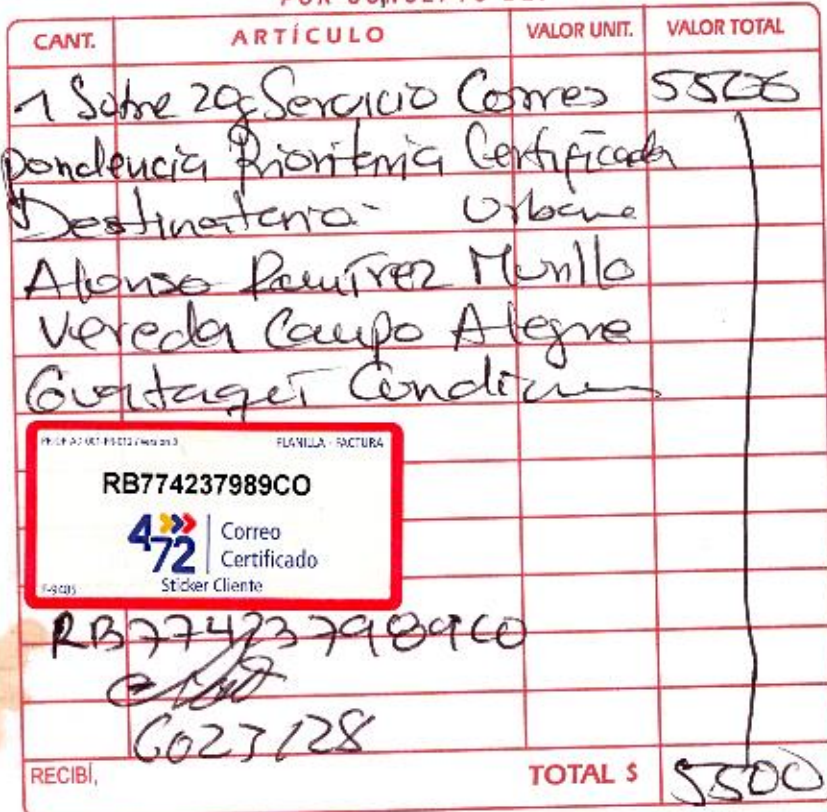 POR CONCEPTO DE:
CANT. ARTÍCULO VALOR UNIT. VALOR TOTAL
1 Sobre 20g Servicio Corres 5500
pondencia Prioritaria Certificada
Destinatario - Urbano
Alonso Ramírez Murillo
Vereda Campo Alegre
Guataquí Cundina
PLANILLA - FACTURA
RB774237989CO
472 Correo
Certificado
Sticker Cliente
RB774237989CO
C023128
RECIBÍ, TOTAL $ 5500